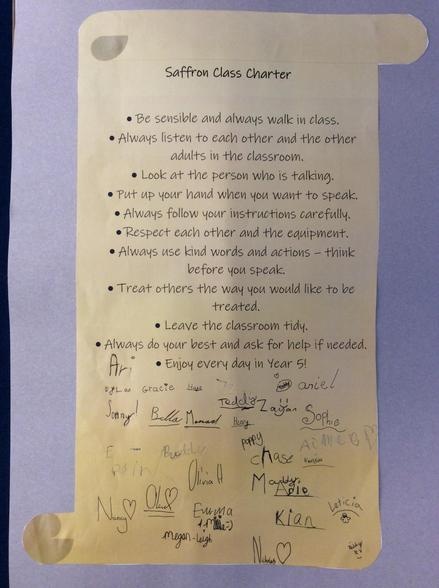 Saffron Class Charter
• Be sensible and always walk in class.
• Always listen to each other and the other
adults in the classroom.
• Look at the person who is talking.
• Put up your hand when you want to speak.
• Always follow your instructions carefully.
• Respect each other and the equipment.
• Always use kind words and actions – think
before you speak.
• Treat others the way you would like to be
treated.
• Leave the classroom tidy.
• Always do your best and ask for help if needed.
• Enjoy every day in Year 5!
Ari
Gracie
ariel
Teddy
Sonny
Bella
Zayan
Sophie
Poppy
Chase
Olivia H
Nancy
Emma
Kian
Leticia
megan-leigh